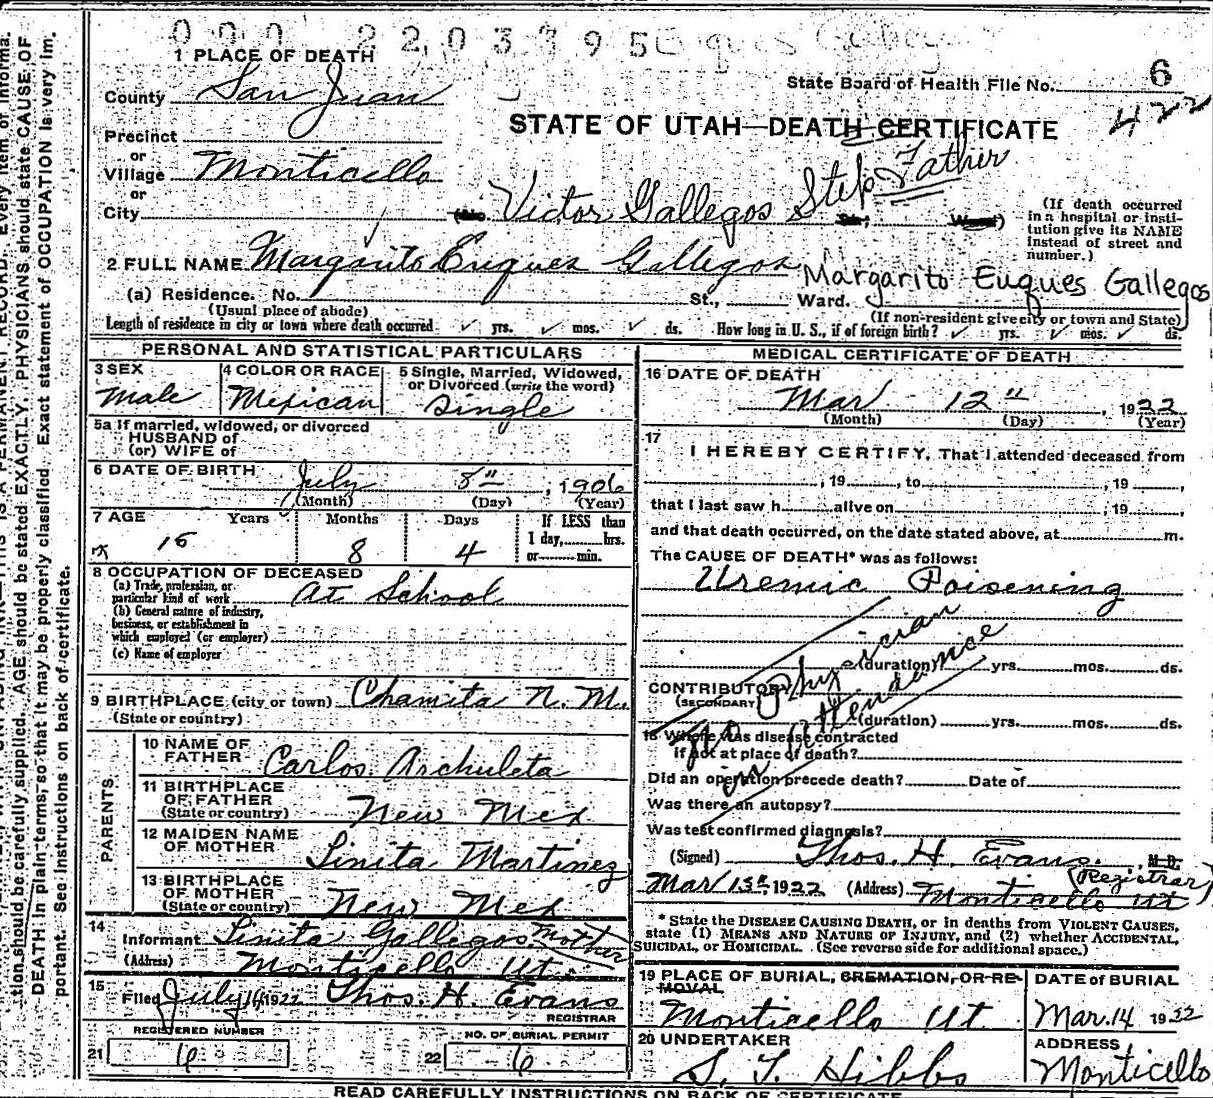 000 2203395
1 PLACE OF DEATH
County San Juan
State Board of Health File No. 6
422
STATE OF UTAH—DEATH CERTIFICATE
Precinct
or
Village Monticello
or
City
(No Victor Gallegos Step Father St; Ward)
(If death occurred
in a hospital or insti-
tution give its NAME
instead of street and
number.)
2 FULL NAME Margarito Euques Gallegos Margarito Euques Gallegos
(a) Residence. No. St., Ward.
(Usual place of abode) (If non-resident give city or town and State)
Length of residence in city or town where death occurred ✓ yrs. ✓ mos. ✓ ds. How long in U. S., if of foreign birth? ✓ yrs. ✓ mos. ✓ ds.
PERSONAL AND STATISTICAL PARTICULARS
3 SEX
Male
4 COLOR OR RACE
Mexican
5 Single, Married, Widowed,
or Divorced (write the word)
Single
5a If married, widowed, or divorced
HUSBAND of
(or) WIFE of
6 DATE OF BIRTH July 8", 1906
(Month) (Day) (Year)
7 AGE Years Months Days
If LESS than
1 day, hrs.
or min.
15 8 4
8 OCCUPATION OF DECEASED
(a) Trade, profession, or
particular kind of work At School
(b) General nature of industry,
business, or establishment in
which employed (or employer)
(c) Name of employer
9 BIRTHPLACE (city or town) Chamita N. M.
(State or country)
PARENTS
10 NAME OF
FATHER Carlos Archuleta
11 BIRTHPLACE
OF FATHER
(State or country) New Mex
12 MAIDEN NAME
OF MOTHER Sinita Martinez
13 BIRTHPLACE
OF MOTHER
(State or country) New Mex
14
Informant Sinita Gallegos Mother
(Address) Monticello Ut.
15
Filed July 1922 Thos. H. Evans
REGISTRAR
REGISTERED NUMBER
21 6
NO. OF BURIAL PERMIT
22 6
MEDICAL CERTIFICATE OF DEATH
16 DATE OF DEATH
Mar 12", 1922
(Month) (Day) (Year)
17
I HEREBY CERTIFY, That I attended deceased from
, 19 , to , 19 ,
that I last saw h alive on , 19 ,
and that death occurred, on the date stated above, at m.
The CAUSE OF DEATH* was as follows:
Uremic Poisening
No Physician
in Attendence
(duration) yrs. mos. ds.
CONTRIBUTORY
(SECONDARY)
(duration) yrs. mos. ds.
18 Where was disease contracted
if not at place of death?
Did an operation precede death? Date of
Was there an autopsy?
Was test confirmed diagnosis?
(Signed) Thos. H. Evans. , M.D.
(Registrar)
Mar 13th 1922 (Address) Monticello Ut
* State the DISEASE CAUSING DEATH, or in deaths from VIOLENT CAUSES,
state (1) MEANS AND NATURE OF INJURY, and (2) whether ACCIDENTAL,
SUICIDAL, or HOMICIDAL. (See reverse side for additional space.)
19 PLACE OF BURIAL, CREMATION, OR RE-
MOVAL
Monticello Ut
DATE of BURIAL
Mar. 14 1922
20 UNDERTAKER
S. T. Hibbs
ADDRESS
Monticello
READ CAREFULLY INSTRUCTIONS ON BACK OF CERTIFICATE
tion should be carefully supplied. AGE should be stated EXACTLY. PHYSICIANS should state CAUSE OF
DEATH in plain terms, so that it may be properly classified. Exact statement of OCCUPATION is very im-
portant. See instructions on back of certificate.